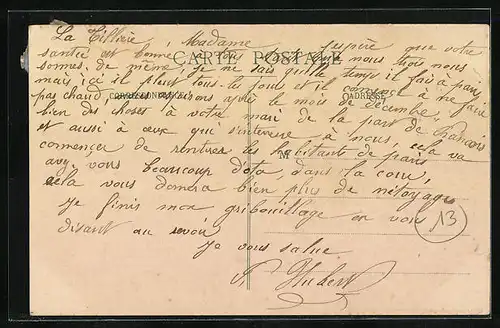 La Tillière, Madame j'espère que votre
santé est bonne
CARTE POSTALE
sommes de même, je ne sais quelle temps il fait à paris
mais ici il pleut tous les jours et il commence à ne faire
pas chaud, le mois de décembre
CORRESPONDANCE
ADRESSE
bien des choses à votre mari de la part de François
et aussi à ceux qui s'intéresse à nous, cela va
commencer de rentrer les habitant de paris
M
avez vous beaucoup d'ota, dans la cour,
cela vous donnera bien plus de nétoyage
Je finis mon gribouillage en vous
disant au revoir
13
Je vous salue
Hubert